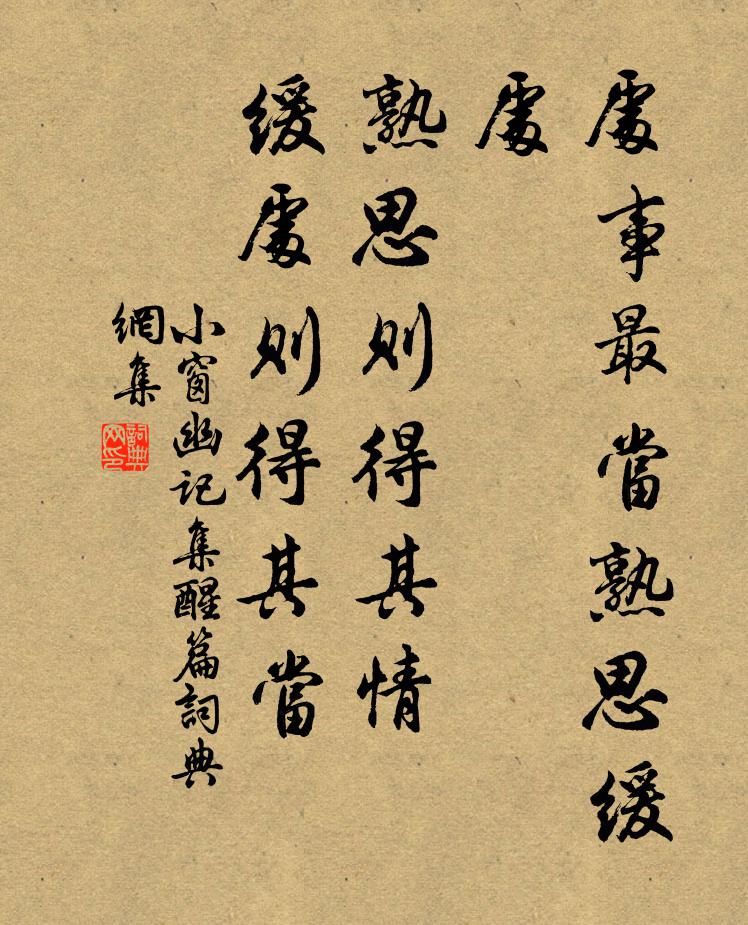 處事最當熟思緩
處
熟思則得其情
緩處則得其當
小窗幽記集醒篇詞典
網集
詞典
网印